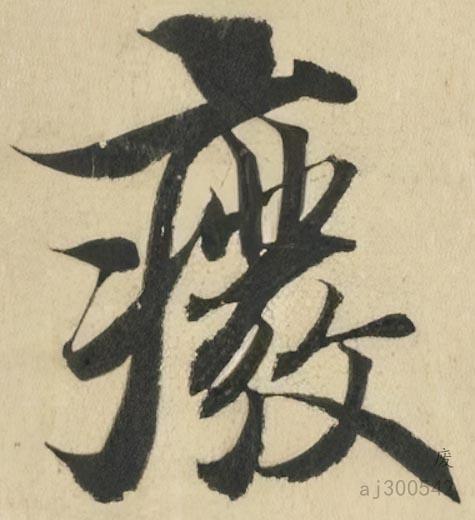 癈
废
aj300542